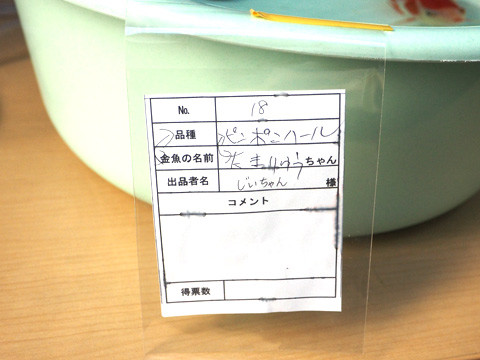 No. 18
品種 ピンポンパール
金魚の名前 たまりゅうちゃん
出品者名 じいちゃん 様
コメント
得票数